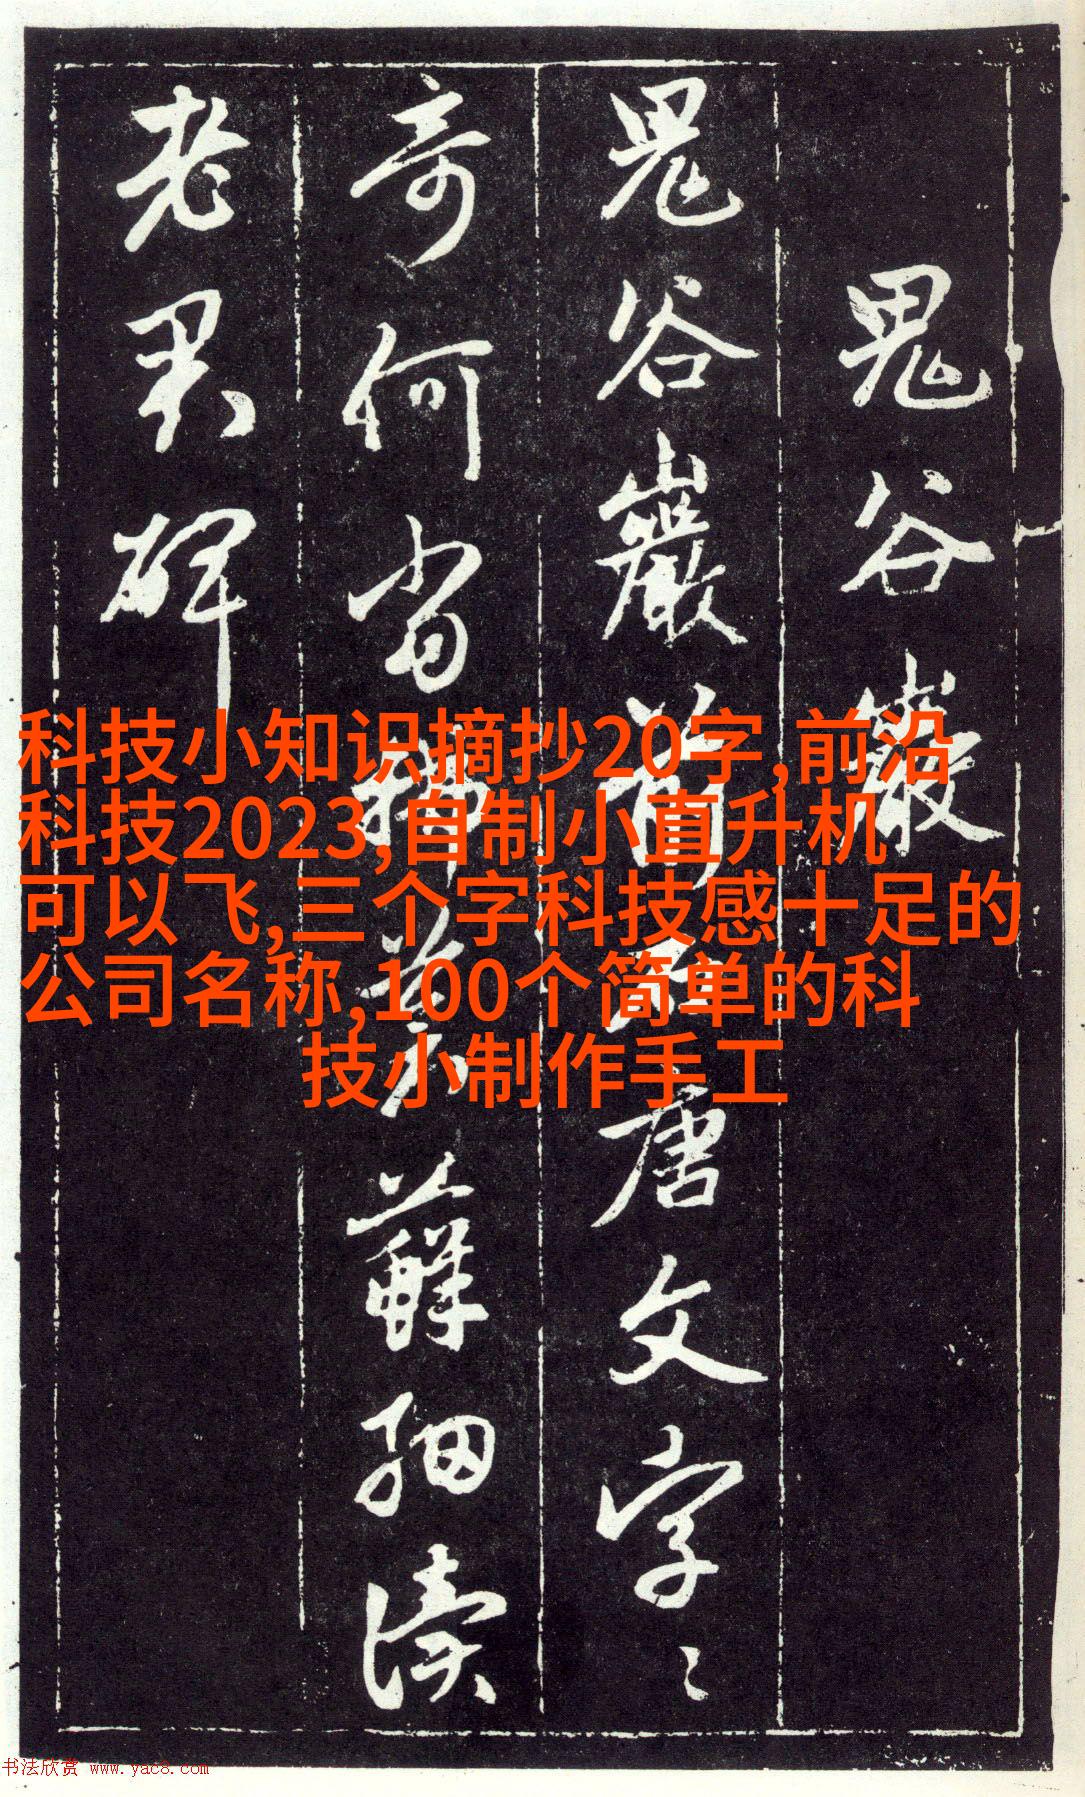 鬼谷巖
鬼谷巖前唐文字〻
奇何當掃蘚細讀
老君碑
科技小知识摘抄20字,前沿
科技2023,自制小直升机
可以飞,三个字科技感十足的
公司名称,100个简单的科
技小制作手工
书法欣赏 www.yac8.com